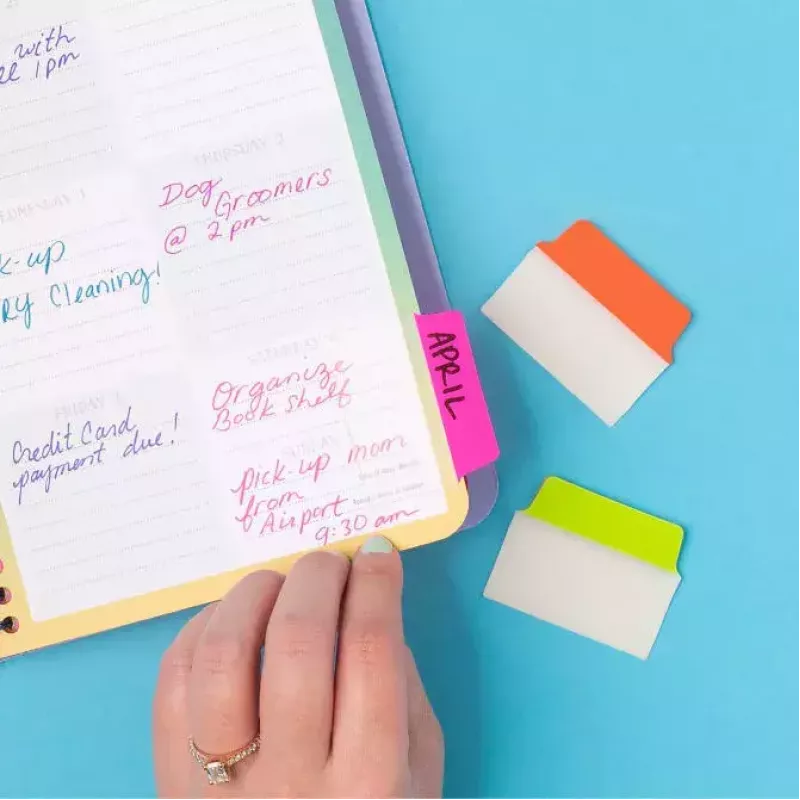 with
1pm
THURSDAY 2
Dog
Groomers
@ 2pm
WEDNESDAY 1
k-up
RY Cleaning!
APRIL
SATURDAY
Organize
Book shelf
FRIDAY 3
Credit Card
payment due!
SUNDAY
pick-up mom
from
Airport
9:30 am